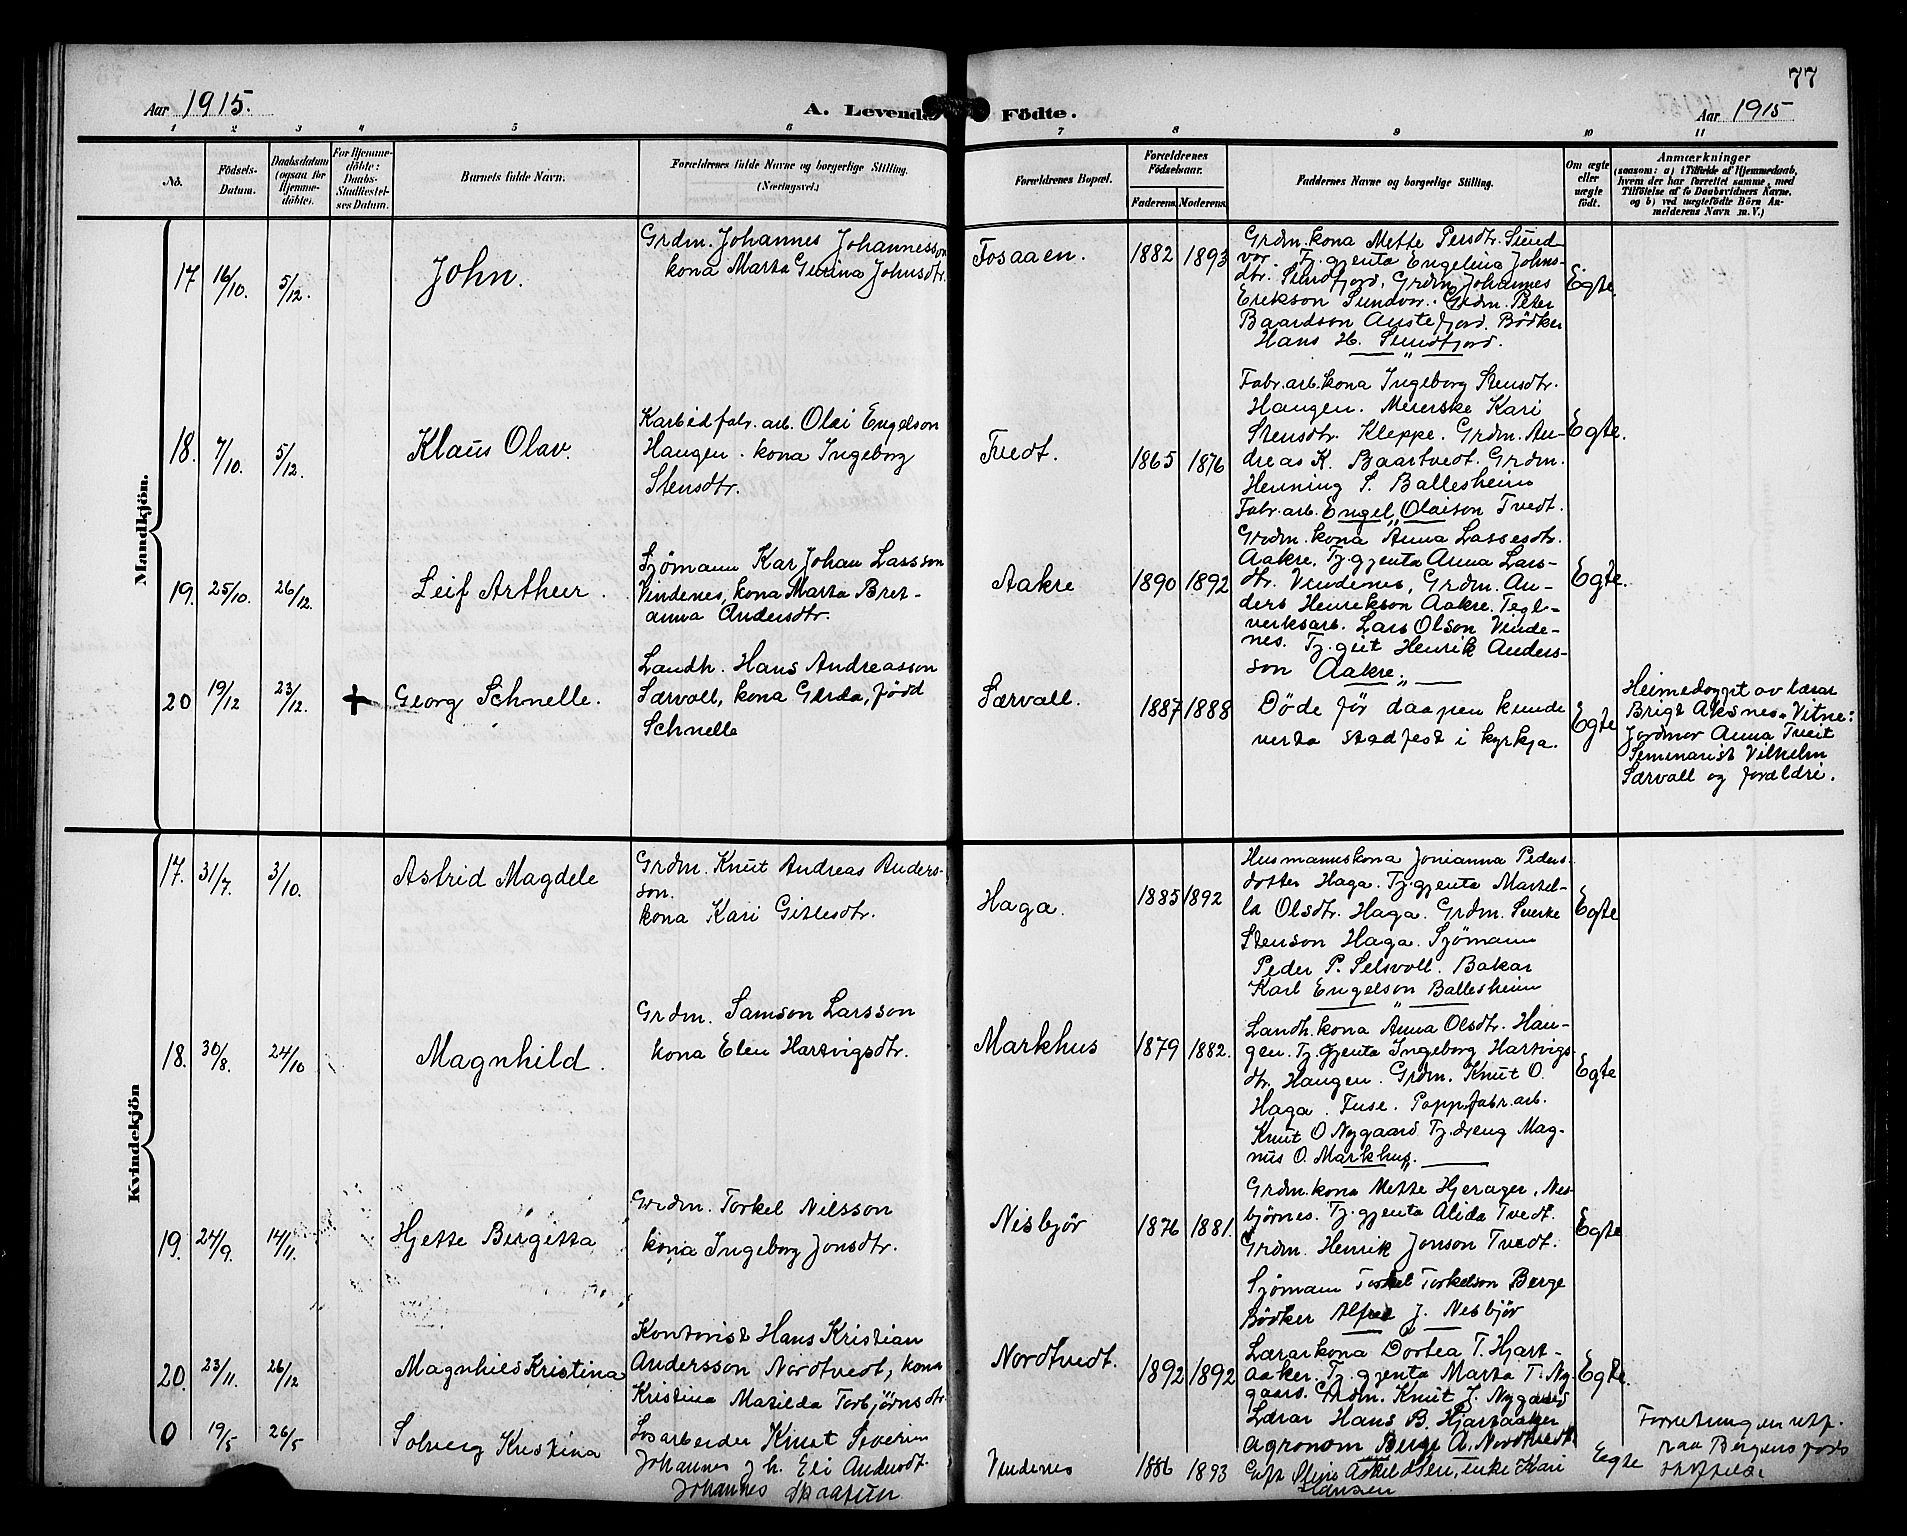 77
Aar 1915.
A. Levende Födte.
Aar 1915
1 2 3 4 5 6 7 8 9 10 11
No.
Födsels-
Datum.
Daabsdatum
(ogsaa for
Hjemme-
döbte).
For Hjemme-
döbte:
Daabs-
Stadfæstel-
ses Datum.
Barnets fulde Navn.
Forældrenes fulde Navne og borgerlige Stilling.
(Næringsvei.)
Forældrenes Bopæl.
Forældrenes
Födselsaar.
Faderens. Moderens.
Faddernes Navne og borgerlige Stilling.
Om ægte
eller
uægte
födt.
Anmærkninger
(saasom: a) i Tilfælde af Hjemmedaab,
hvem der har forrettet samme, med
Tilföielse af to Daabsvidners Navne.
og b) ved uægtefödte Börn An-
melderens Navn m. V.)
Mandkjön.
17 16/10. 5/12.
John.
Grdm. Johannes Johannesson
kona Marta Gurina Johnsdtr.
Fosaaen.
1882 1893
Grdm. kona Mette Persdtr. Sund-
vor. Tj. gjenta Engelina Johns-
dtr. Sundfjord, Grdm. Johannes
Erikson Sundvor. Grdm. Peter
Baardson Austefjord. Bödker
Hans H. Sundfjord.
Egte.
18. 7/10. 5/12.
Klaus Olav.
Karbidfabr. arb. Olai Engelson
Haugen. kona Ingeborg
Stensdtr.
Tvedt.
1865 1876
Fabr. arb. kona Ingeborg Stensdtr.
Haugen. Meierske Kari
Stensdtr. Kleppe. Grdm. An-
dreas K. Baartvedt. Grdm.
Henning S. Ballesheim
Fabr. arb. Engel Olaison Tvedt.
Egte.
19. 25/10. 26/12.
Leif Arthur.
Sjömann Kar Johan Larsson
Vindenes, kona Marta Bret-
anna Andersdtr.
Aakre
1890 1892
Grdm. kona Anna Lassesdtr.
Aakre, Tj. gjenta Anna Lars-
dtr. Vindenes, Grdm. An-
ders Henrikson Aakre. Tegl-
verksarb. Lars Olson Vinde-
nes. Tj. gut Henrik Anders-
son Aakre.
Egte.
20 19/12 23/12.
Georg Schnelle.
Landh. Hans Andreasson
Særvoll, kona Gerda, född
Schnelle
Særvoll.
1887 1888
Döde för daapen kunde
verta stadfest i kyrkja.
Egte
Heimedöypt av lærar
Brigt Aksnes. Vitne:
Jordmor Anna Tveit
Seminarist Vilhelm
Særvoll og foreldri.
Kvindekjön
17. 31/7. 3/10.
Astrid Magdele
Grdm. Knut Andreas Anders-
son.
kona Kari Gitlesdtr.
Haga.
1885 1892
Husmannskona Jonianna Peders-
dotter Haga. Tj. gjenta Martel-
la Olsdtr. Haga. Grdm. Sverke
Stenson Haga. Sjömann
Peder P. Selsvoll. Bakar
Karl Engelson Ballesheim
Egte
18. 30/8. 24/10
Magnhild.
Grdm. Samson Larsson
kona Elen Hartvigsdtr.
Markhus
1879 1882.
Landh. kona Anna Olsdtr. Hau-
gen. Tj. gjenta Ingeborg Hartvigs-
dtr. Haugen. Grdm. Knut O.
Haga. Fuse. Pappfabr. arb.
Knut O Nygaard Tj. dreng Mag-
nus O. Markhus.
Egte
19. 24/9. 14/11.
Hjette Birgitta
Grdm. Torkel Nilsson
kona Ingeborg Jonsdtr.
Nisbjör
1876 1881.
Grdm. kona Mette Hjerager, Nes-
björnes. Tj. gjenta Alida Tvedt.
Grdm. Henrik Jonson Tvedt.
Sjömann Torkel Torkelson Berge
Bödker Alfred J. Nesbjör
Egte
20. 23/11. 26/12
Magnhild Kristina
Kontorist Hans Kristian
Andersson Nordtvedt, kona
Kristina Matilda Torbjörnsdtr
Nordtvedt.
1892 1892
Lærarkona Dortea T. Hjart-
aaker. Tj. gjenta Marta T. Ny-
gaard. Grdm. Knut J. Nygaard
Lærar Hans B. Hjartaaker
agronom Berge A. Nordtvedt
Egte.
0 19/5 26/5
Solveig Kristina
Losarbeider Knut Severin
Johannes og h. Eli Andersdt.
Johannes
Vindenes
1886 1893
Askeldsen, enke Kari
Hansen
Egte
Forretningen utf.
paa Bergens